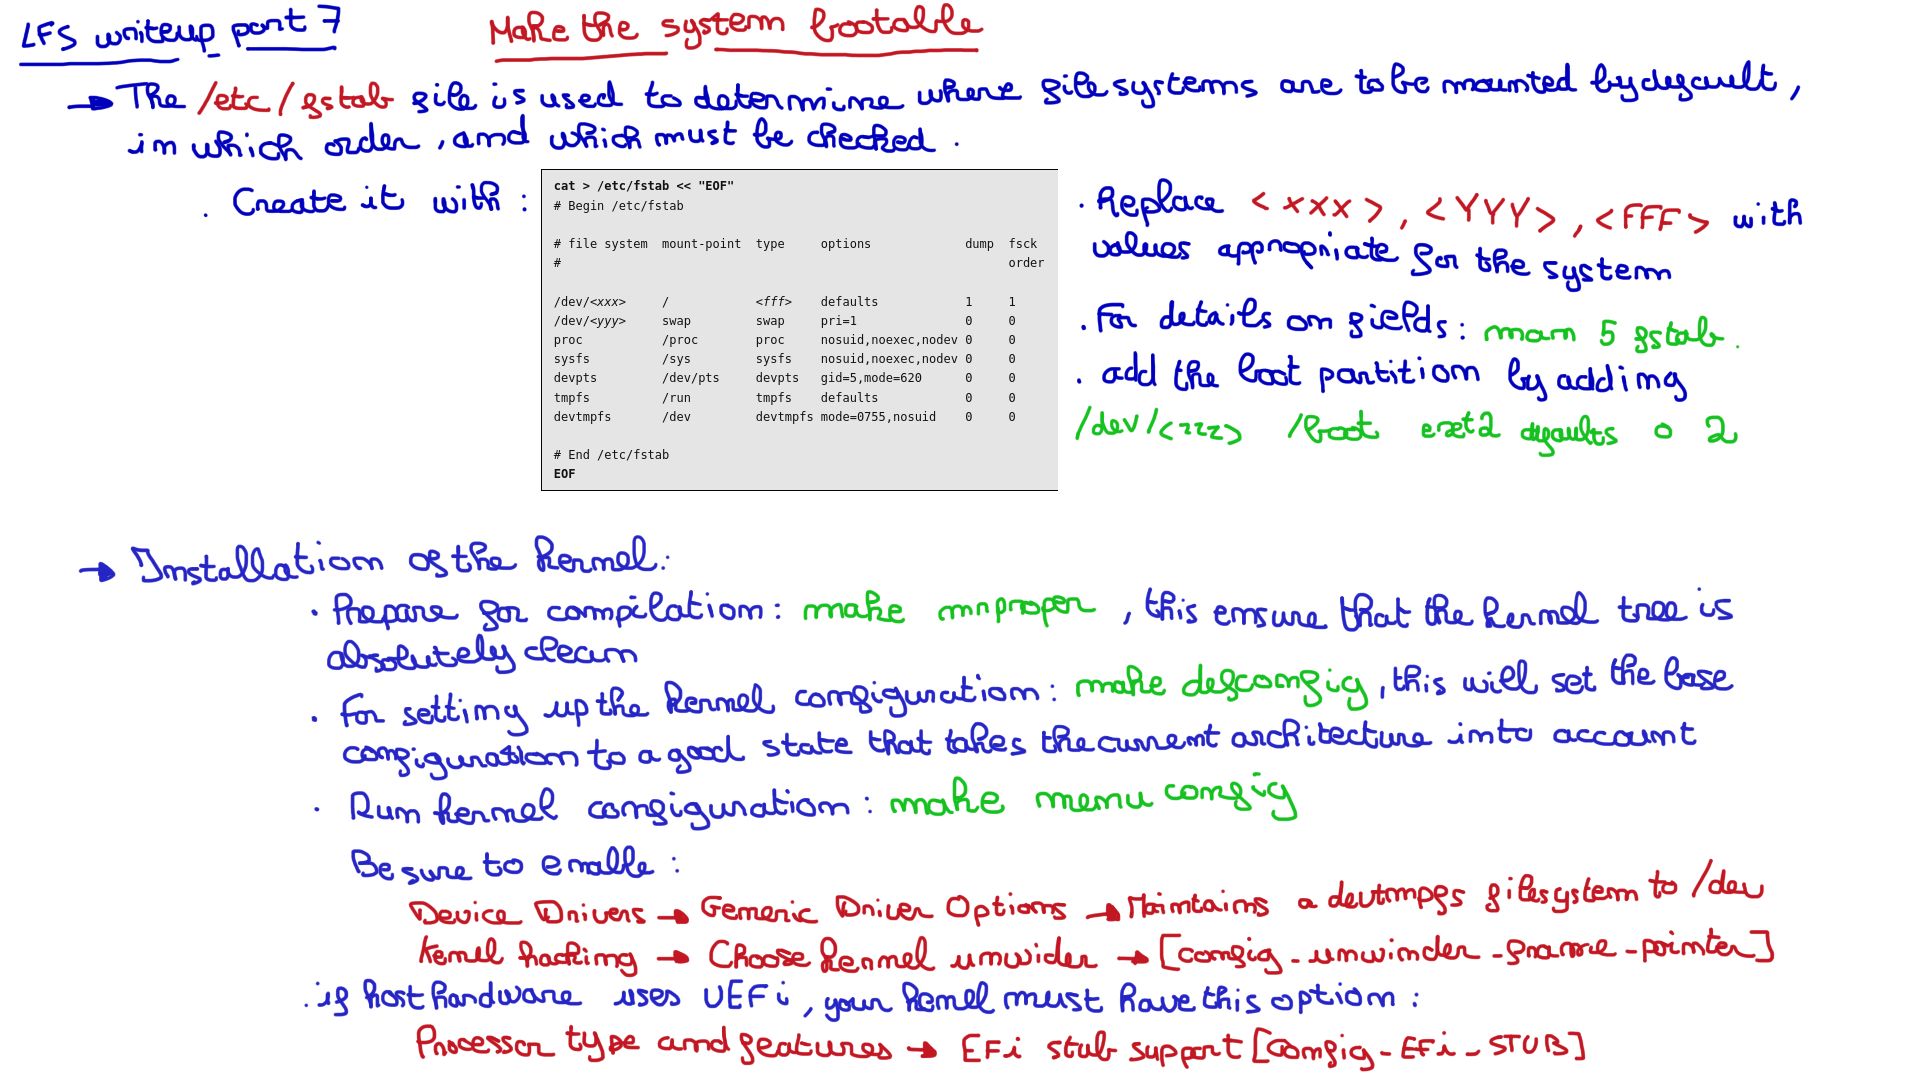 LFS writeup part 7
Make the system bootable
→ The /etc/fstab file is used to determine where file systems are to be mounted by default,
in which order, and which must be checked.
. Create it with :
cat > /etc/fstab << "EOF"
# Begin /etc/fstab
# file system mount-point type options dump fsck
# order
/dev/<xxx> / <fff> defaults 1 1
/dev/<yyy> swap swap pri=1 0 0
proc /proc proc nosuid,noexec,nodev 0 0
sysfs /sys sysfs nosuid,noexec,nodev 0 0
devpts /dev/pts devpts gid=5,mode=620 0 0
tmpfs /run tmpfs defaults 0 0
devtmpfs /dev devtmpfs mode=0755,nosuid 0 0
# End /etc/fstab
EOF
. Replace <xxx>, <YYY>, <FFF> with
values appropriate for the system
. For details on fields: man 5 fstab.
. add the boot partition by adding
/dev/<zzz> /boot ext2 defaults 0 2
→ Installation of the kernel:
. Prepare for compilation: make mrproper, this ensure that the kernel tree is
absolutely clean
. For setting up the kernel configuration: make defconfig, this will set the base
configuration to a good state that takes the current architecture into account
. Run kernel configuration : make menuconfig
Be sure to enable :
Device Drivers → Generic Driver Options → Maintains a devtmpfs filesystem to /dev
Kernel hacking → Choose kernel unwider → [config_unwinder_frame_pointer]
. if host hardware uses UEFi, your kernel must have this option :
Processor type and features → EFi stub support [Config-EFi-STUB]